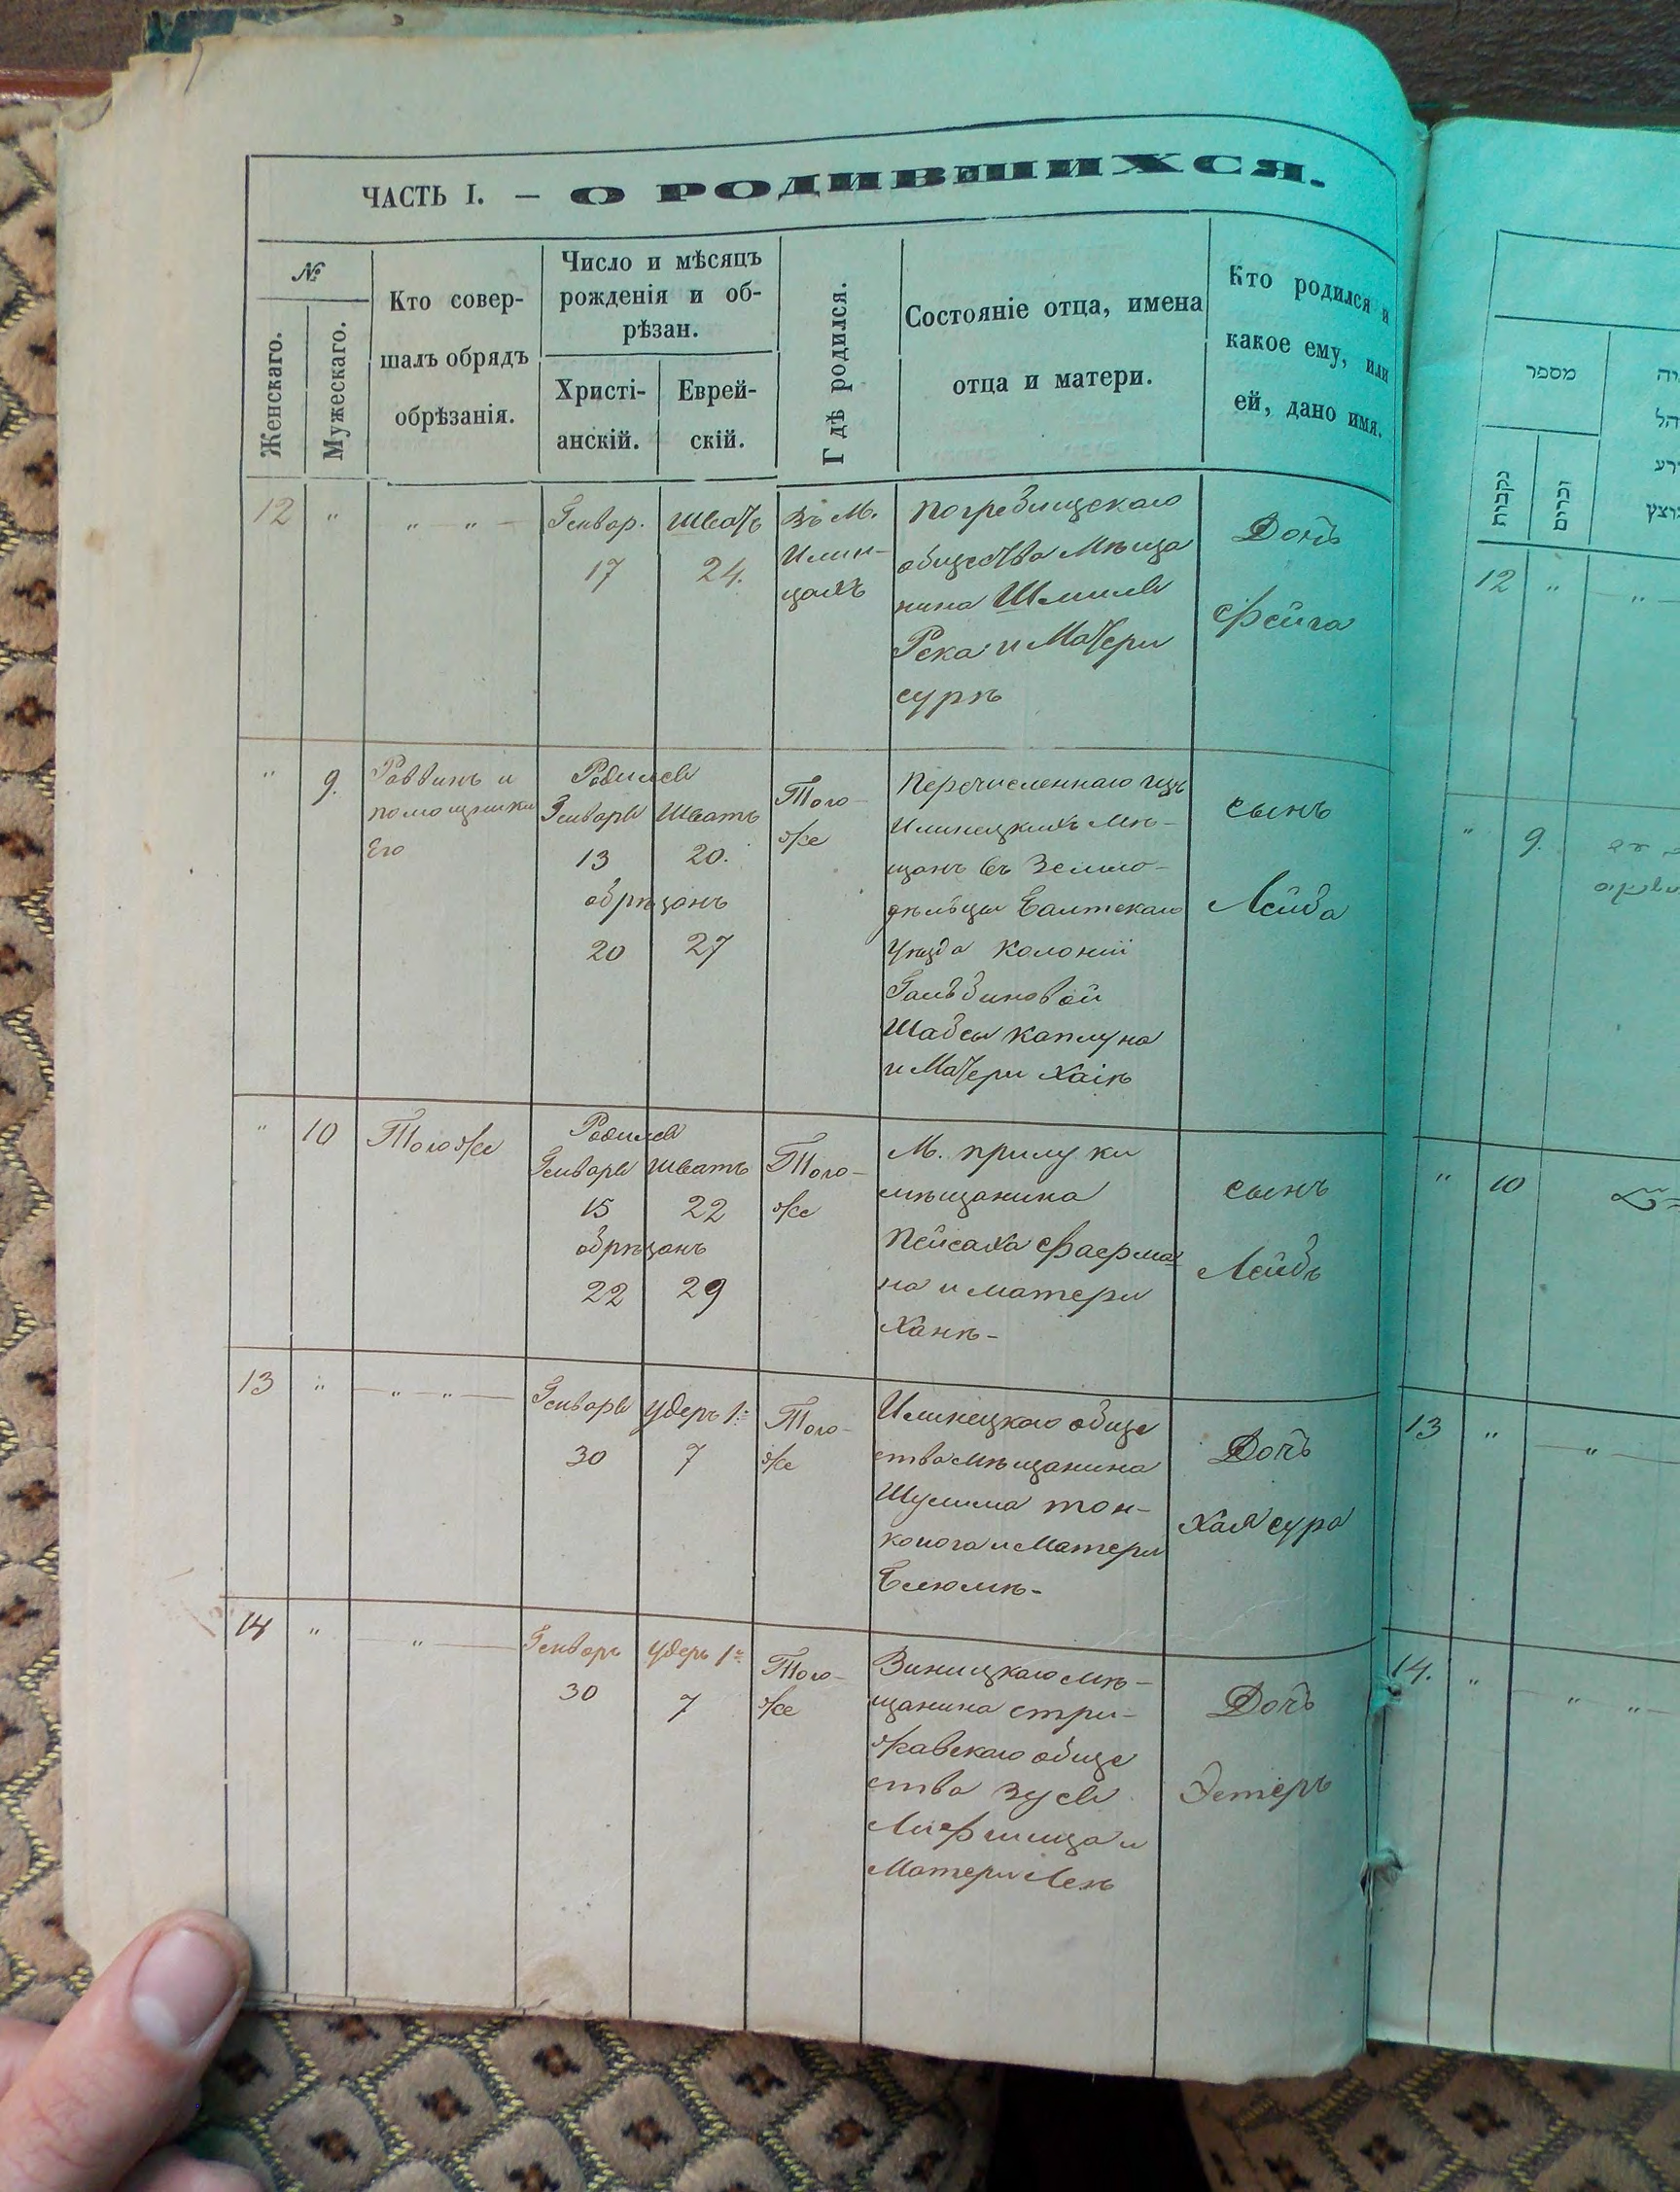 ЧАСТЬ I. — О РОДИВШИХСЯ.
№
Женскаго.
Мужескаго.
Кто совер-
шалъ обрядъ
обрѣзанія.
Число и мѣсяцъ
рожденія и об-
рѣзан.
Христі-
анскій.
Еврей-
скій.
Гдѣ родился.
Состояніе отца, имена
отца и матери.
Кто родился и
какое ему, или
ей, дано имя.
12 " " — " — Генвар. Шватъ
17 24.
Въ М.
Илин-
цахъ
Погребищскаго
общества мѣща
нина Шмиля
Река и Матери
сурѣ
Дочь
Фейга
" 9. Раввинъ и
помощники
Его
Родился
Генваря Шватъ
13 20.
обрѣзанъ
20 27
Того-
же
Перечисленнаго изъ
Илинецкихъ мѣ-
щанъ въ Земло-
дѣльцы Балтскаго
Уѣзда Колоніи
Гальбиновой
Шабсы каплуна
и Матери Хаiѣ
сынъ
Лейба
" 10 Тогоже
Родился
Генваря Шватъ
15 22
обрѣзанъ
22 29
Того-
же
М. прилуки
мѣщанина
Пейсаха Фаерма
на и матери
Ханѣ-
сынъ
Лейбъ
13 " — " — " — Генваря Удеръ 1й
30 7
Того-
же
Илинецкаго обще
ства мѣщанина
Шулима тон-
конога и Матери
Блюмѣ-
Дочь
Хая сура
14 " — " — Генварь Удеръ 1й
30 7
Того-
же
Виницкаго мѣ-
щанина стри-
жавскаго обще
ства Зуся
Лифшица и
Матери Леѣ
Дочь
Эстеръ
מספר
נקבות
זכרים
12 " — " —
" 9.
" 10
13 " — " —
14. " — " " —